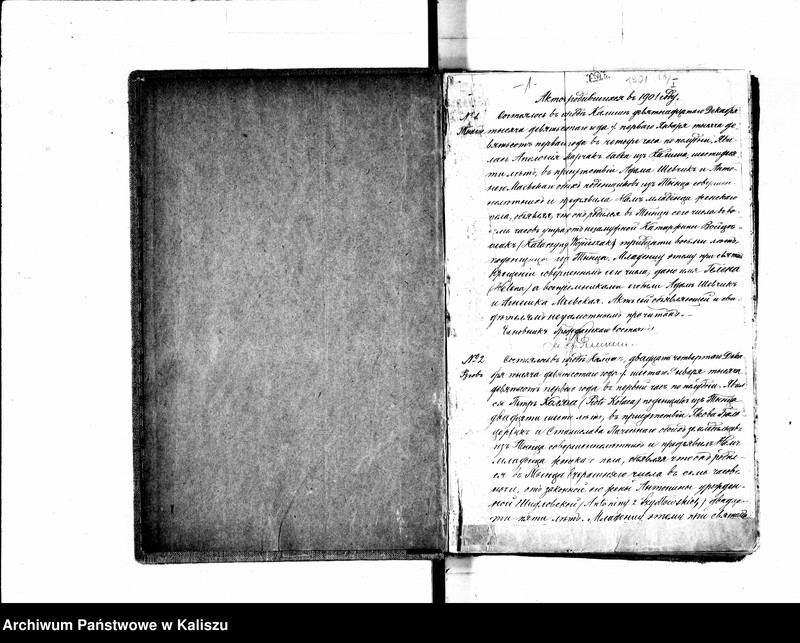 -1-
1901
Акты родившихся въ 1901 году.
№ 1
Тынецъ
Состоялось въ городѣ Калишѣ девятнадцатаго Декабря
тысяча девятисотаго года / перваго Января тысяча де
вятьсотъ перваго года въ четыре часа по полудни. Яви
лась Апелонія Марчакъ бабка изъ Калиша, шестидеся
ти лѣтъ, въ присутствіи Адама Шевчикъ и Анто
на Маевскаго обоихъ поденщиковъ изъ Тынца совершен
нолѣтнихъ и предъявила Намъ младенца женскаго
пола, объявляя, что онъ родился въ Тынцѣ сего числа въ во
семь часовъ утра отъ незамужной Катаржины Войцѣ
шакъ (Katarzyny Wojcieszak) тридцати восьми лѣтъ,
поденщицы изъ Тынца. Младенцу этому при святомъ
крещеніи совершенномъ сего числа, дано имя Гелена
(Helena) а воспріемниками его были Адамъ Шевчикъ
и Агнешка Маевская. Актъ сей объявляющей и сви
дѣтелямъ неграмотнымъ прочитанъ.-
Чиновникъ Гражданскаго состоянія
№ 2
Состоялось въ городѣ Калишѣ, двадцать четвертаго Дека
бря тысяча девятисотаго года / шестаго Января тысяча
девятьсотъ перваго года въ первый часъ по полудни. Явил
ся Петръ (Piotr) поденщикъ изъ Тынца
двадцати шести лѣтъ, въ присутствіи Якова
и Станислава обоихъ земледѣльцевъ
изъ Тынца совершеннолѣтнихъ и предъявилъ Намъ
младенца женскаго пола, объявляя что онъ родил
ся въ Тынцѣ вчерашняго числа въ семь часовъ
ночи, отъ законной его жены Антонины урожден
ной Шидловской (Antoniny z Szydłowskich) двадца
ти пяти лѣтъ. Младенцу этому при святомъ
Archiwum Państwowe w Kaliszu